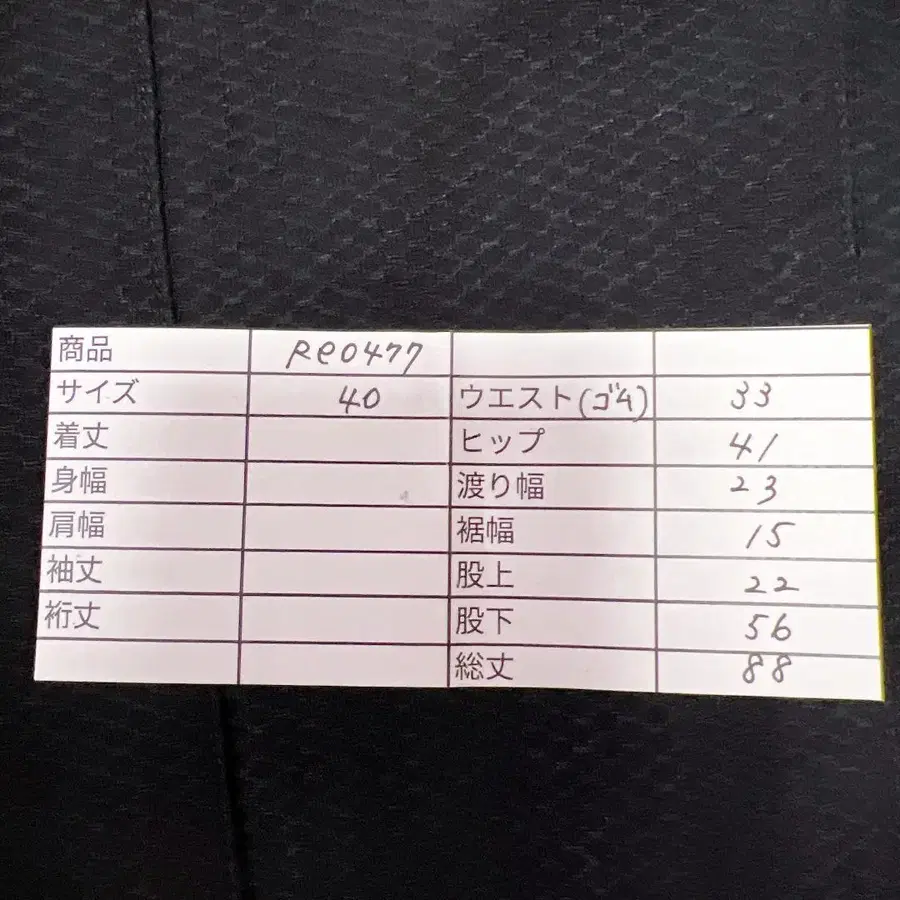 商品 Re0477
サイズ 40 ウエスト(ゴム) 33
着丈 ヒップ 41
身幅 渡り幅 23
肩幅 裾幅 15
袖丈 股上 22
裄丈 股下 56
総丈 88